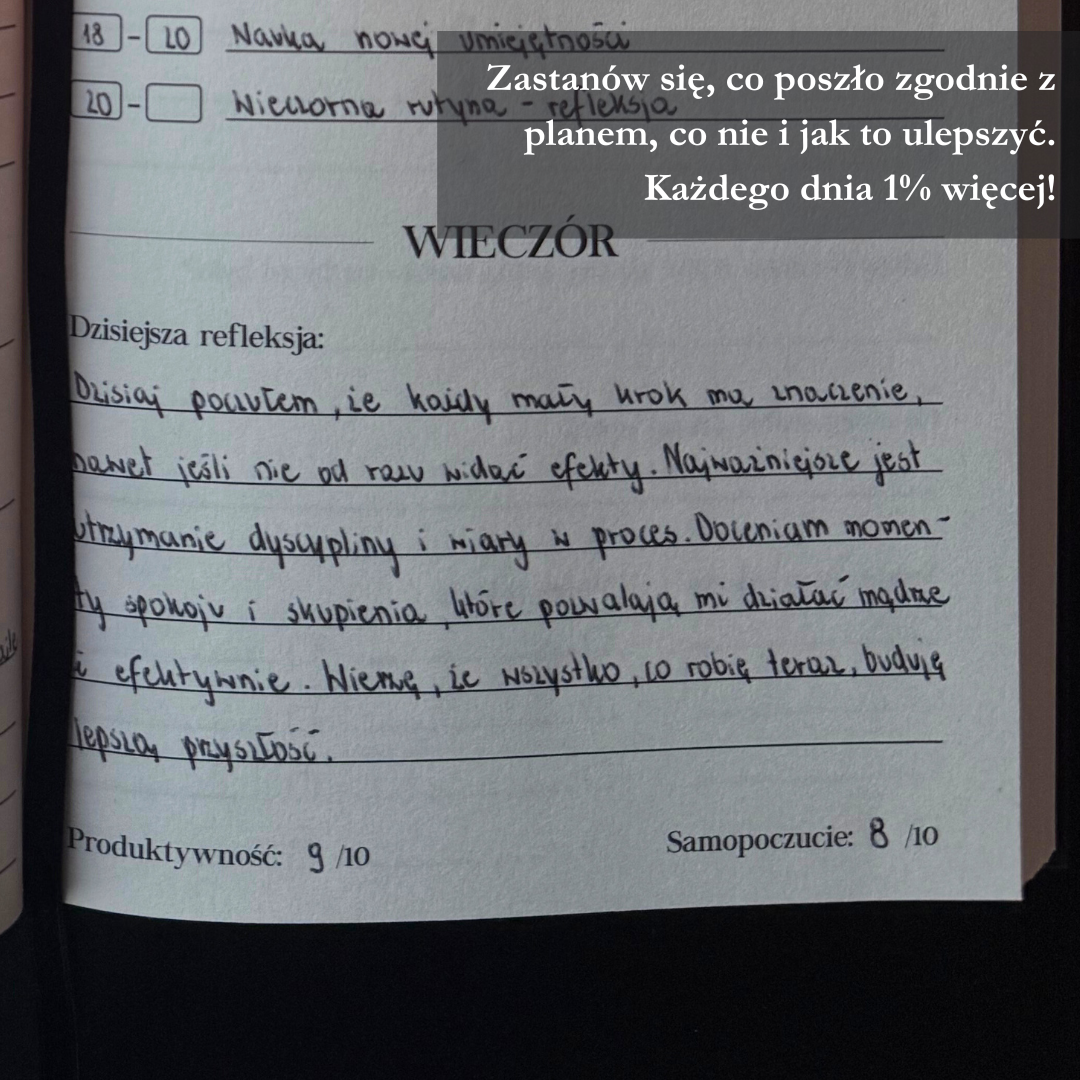 18 - 20 Nauka nowej umiejętności
20 - Wieczorna rutyna - refleksja
Zastanów się, co poszło zgodnie z
planem, co nie i jak to ulepszyć.
Każdego dnia 1% więcej!
WIECZÓR
Dzisiejsza refleksja:
Dzisiaj poczułem, że każdy mały krok ma znaczenie,
nawet jeśli nie od razu widać efekty. Najważniejsze jest
utrzymanie dyscypliny i wiary w proces. Doceniam momen-
ty spokoju i skupienia, które pozwalają mi działać mądrze
i efektywnie. Wierzę, że wszystko, co robię teraz, buduję
lepszą przyszłość.
Produktywność: 9 /10 Samopoczucie: 8 /10